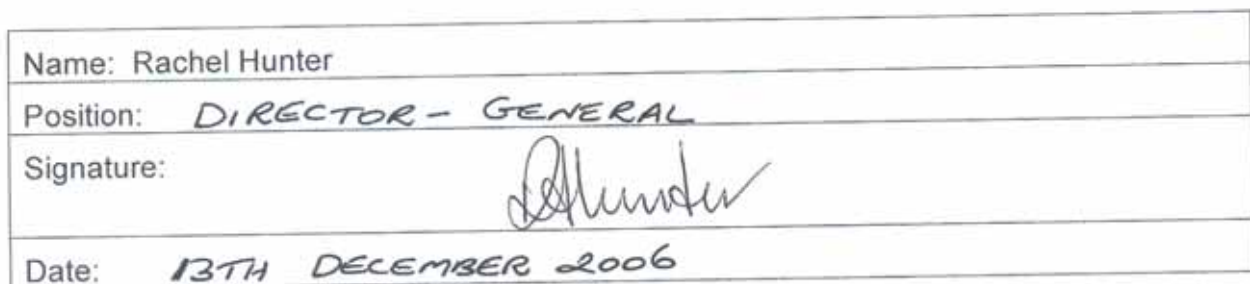 Name: Rachel Hunter
Position: DIRECTOR - GENERAL
Signature: RHunter
Date: 13TH DECEMBER 2006